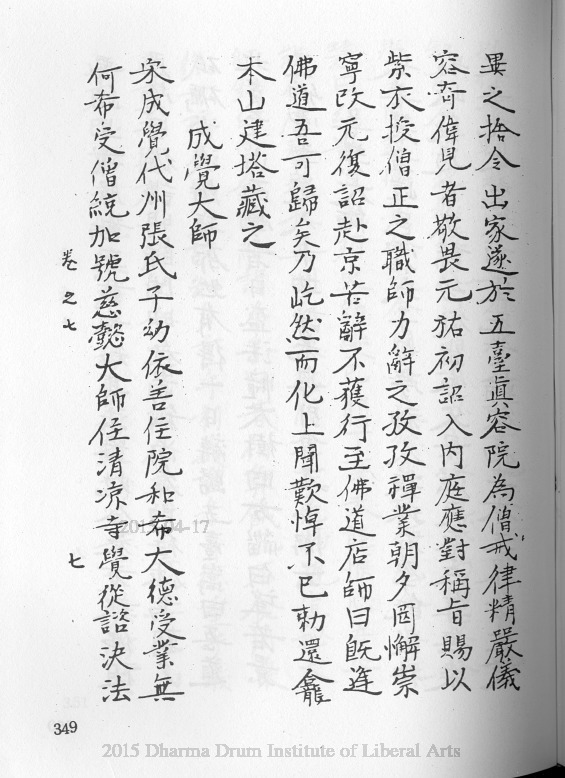 異之捨令出家遂於五臺眞容院為僧戒律精嚴儀
容奇偉見者敬畏元祐初詔入內庭應對稱旨賜以
紫衣授僧正之職師力辭之孜孜禪業朝夕罔懈崇
寧改元復詔赴京苦辭不獲行至佛道店師曰既逢
佛道吾可歸矣乃屹然而化上聞歎悼不已勅還龕
本山建塔藏之
成覺大師
宋成覺代州張氏子幼依善住院和希大德受業無
何希受僧統加號慈懿大師住清凉寺覺從諮決法
卷之七
七
349
2015 Dharma Drum Institute of Liberal Arts